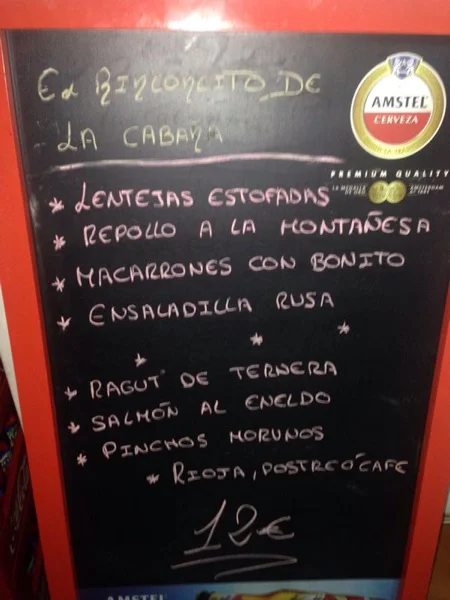 El Rinconcito de
la Cabaña
AMSTEL
CERVEZA
PREMIUM QUALITY
* LENTEJAS ESTOFADAS
* REPOLLO A LA MONTAÑESA
* MACARRONES CON BONITO
* ENSALADILLA RUSA
* * *
* RAGUT DE TERNERA
* SALMÓN AL ENELDO
* PINCHOS MORUNOS
* RIOJA, POSTRE Ó CAFE
12€
AMSTEL